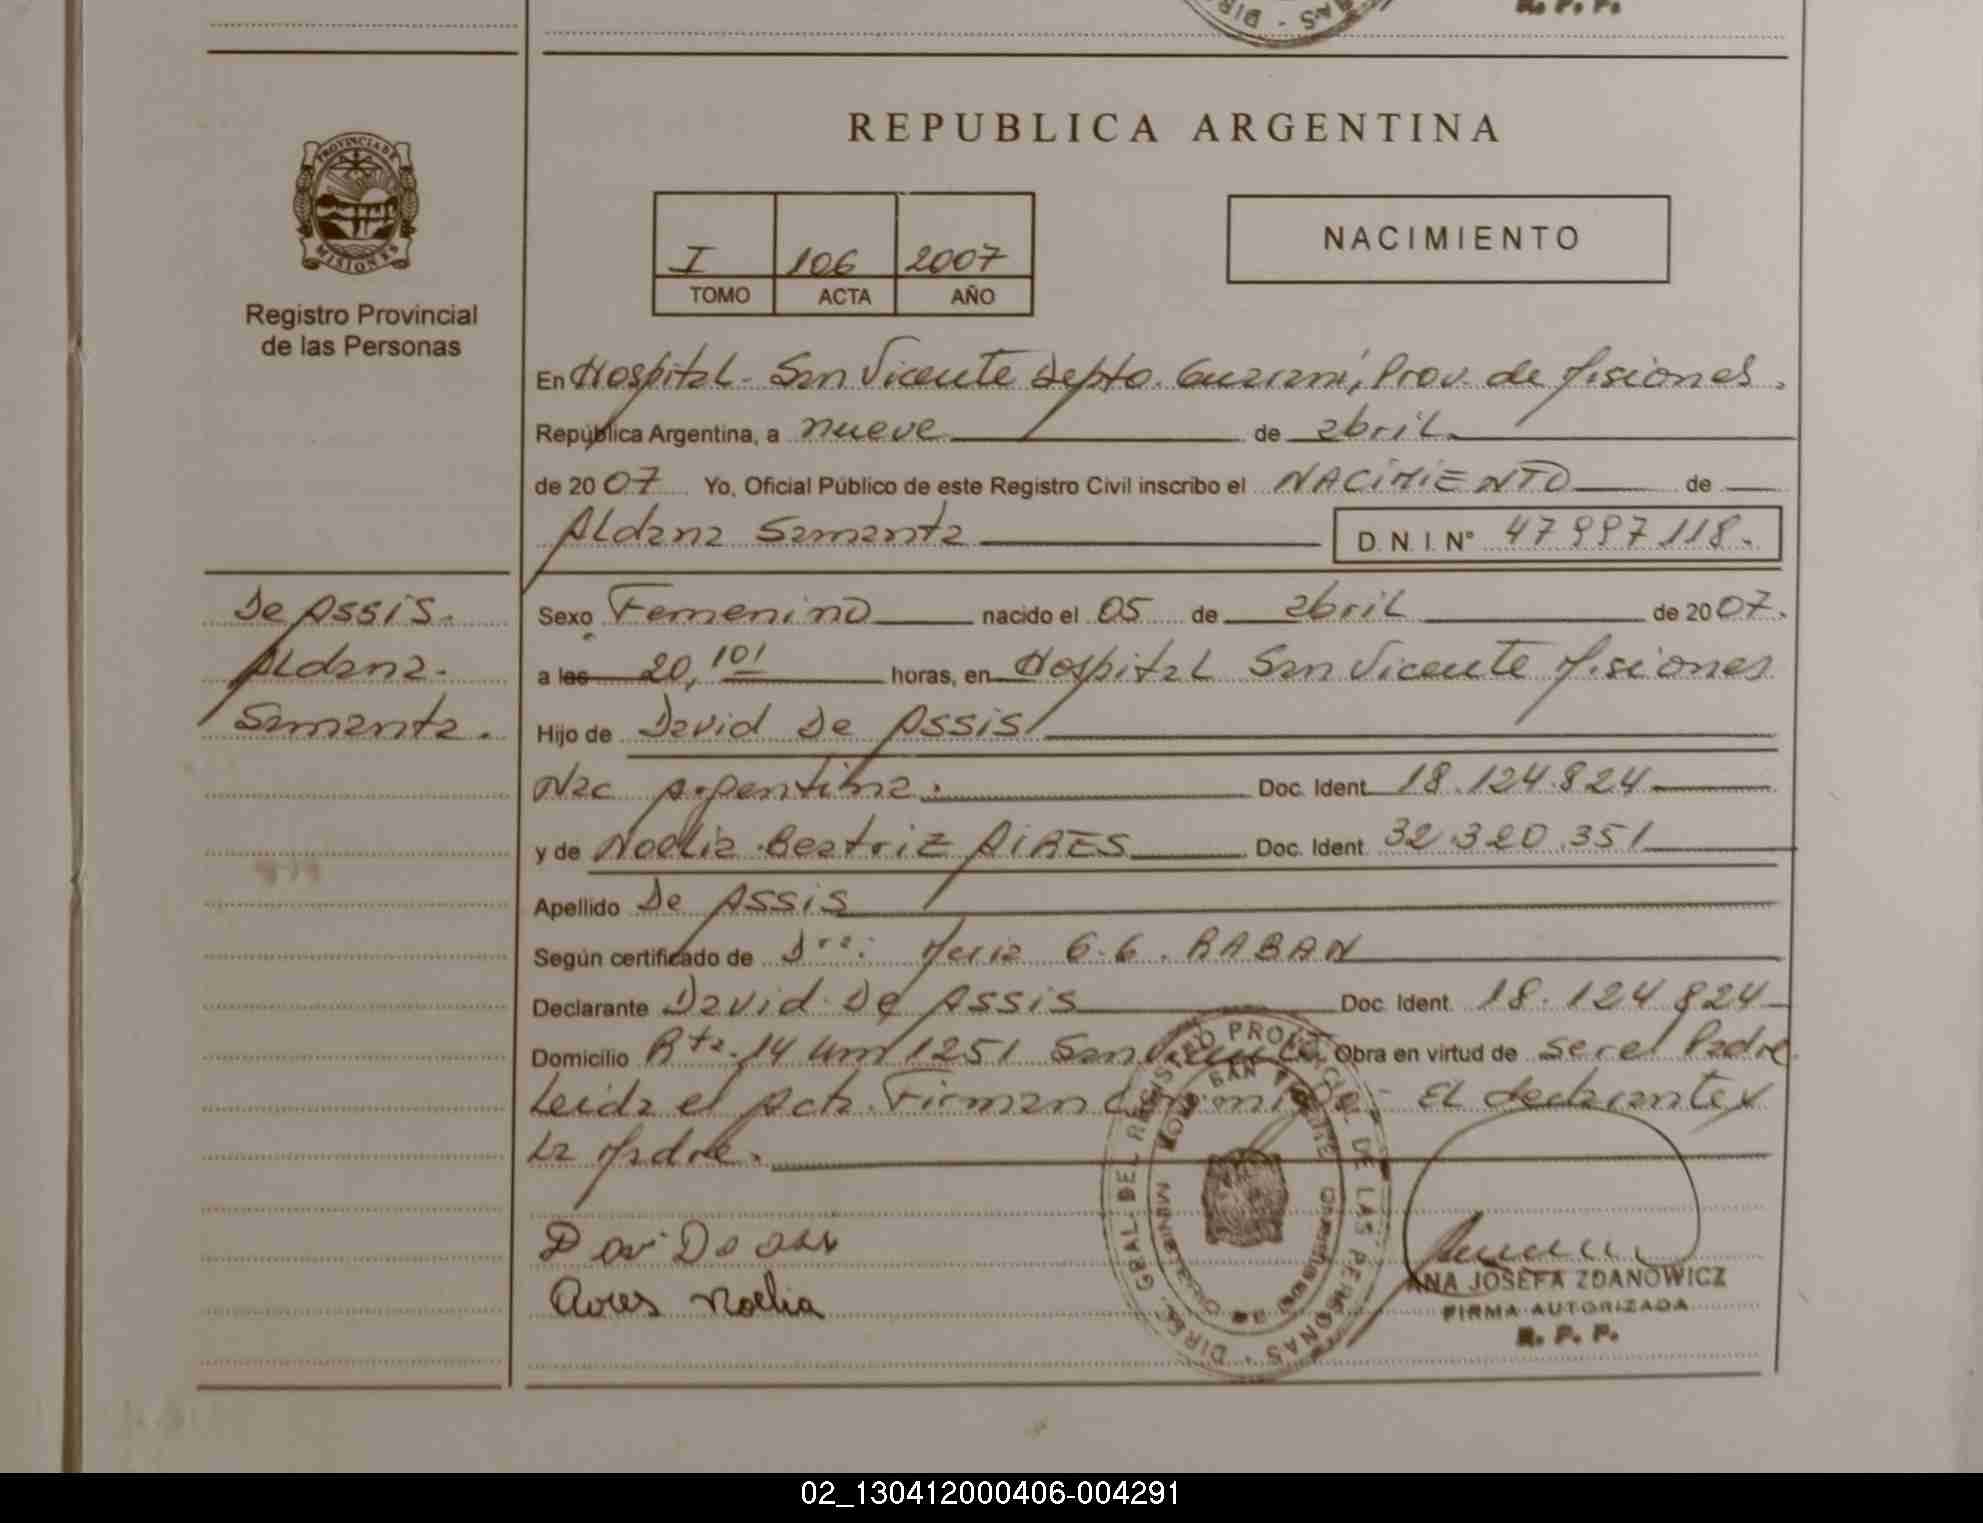 R. P. P.
DIR - SAS
PROVINCIA DE
MISIONES
Registro Provincial
de las Personas
REPUBLICA ARGENTINA
I 106 2007
TOMO ACTA AÑO
NACIMIENTO
En Hospital - San Vicente Depto. Guaraní, Prov. de Misiones.
República Argentina, a nueve de abril
de 2007 Yo, Oficial Público de este Registro Civil inscribo el NACIMIENTO de
Aldana Samanta D. N. I. N° 47997118.
De Assis.
Aldana.
Samanta.
Sexo Femenino nacido el 05 de abril de 2007.
a las 20,10' horas, en Hospital San Vicente Misiones
Hijo de David De Assis
Nac Argentina. Doc. Ident. 18.124.824
y de Noelia Beatriz AIRES Doc. Ident. 32.320.351
Apellido De Assis
Según certificado de Dra: Maria G. G. RABAN
Declarante David De Assis Doc. Ident. 18.124.824
Domicilio Rta. 14 Km 1251 San Vicente Obra en virtud de ser el Padre
Leída el Acta. Firman Conmigo: El declarante y
La Madre.
Aires Noelia
DIR. GRAL. DEL REGISTRO PROVINCIAL DE LAS PERSONAS
SAN VICENTE
ANA JOSEFA ZDANOWICZ
FIRMA AUTORIZADA
R. P. P.
02_130412000406-004291